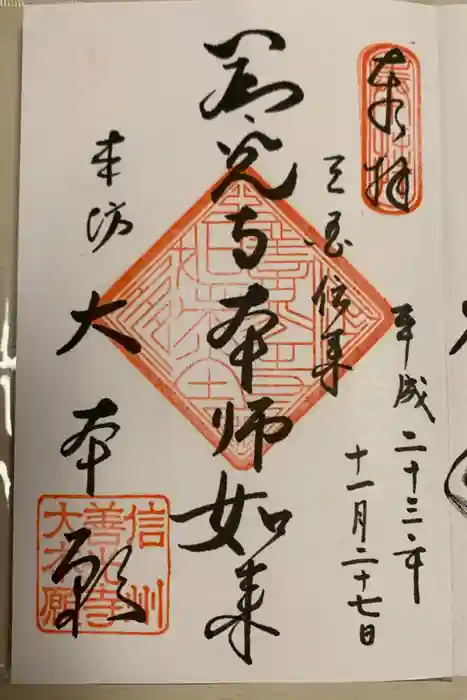 奉拝
平成二十三年
十一月二十七日
三国伝来
善光寺本師如来
本坊
大本願
信州
善光寺
大本願